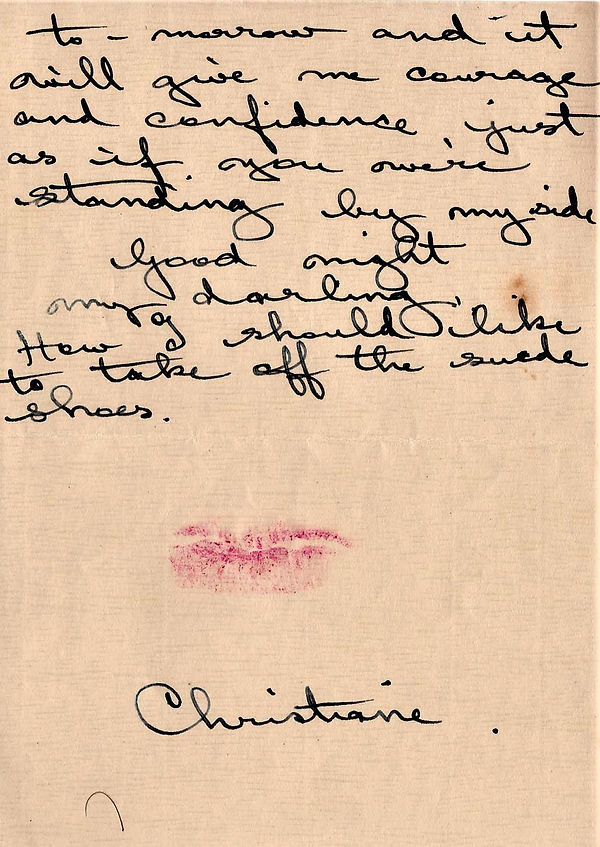 to - morrow and it
will give me courage
and confidence just
as if you were
standing by my side
Good night
my darling,
How I should like
to take off the suede
shoes.
Christiane.